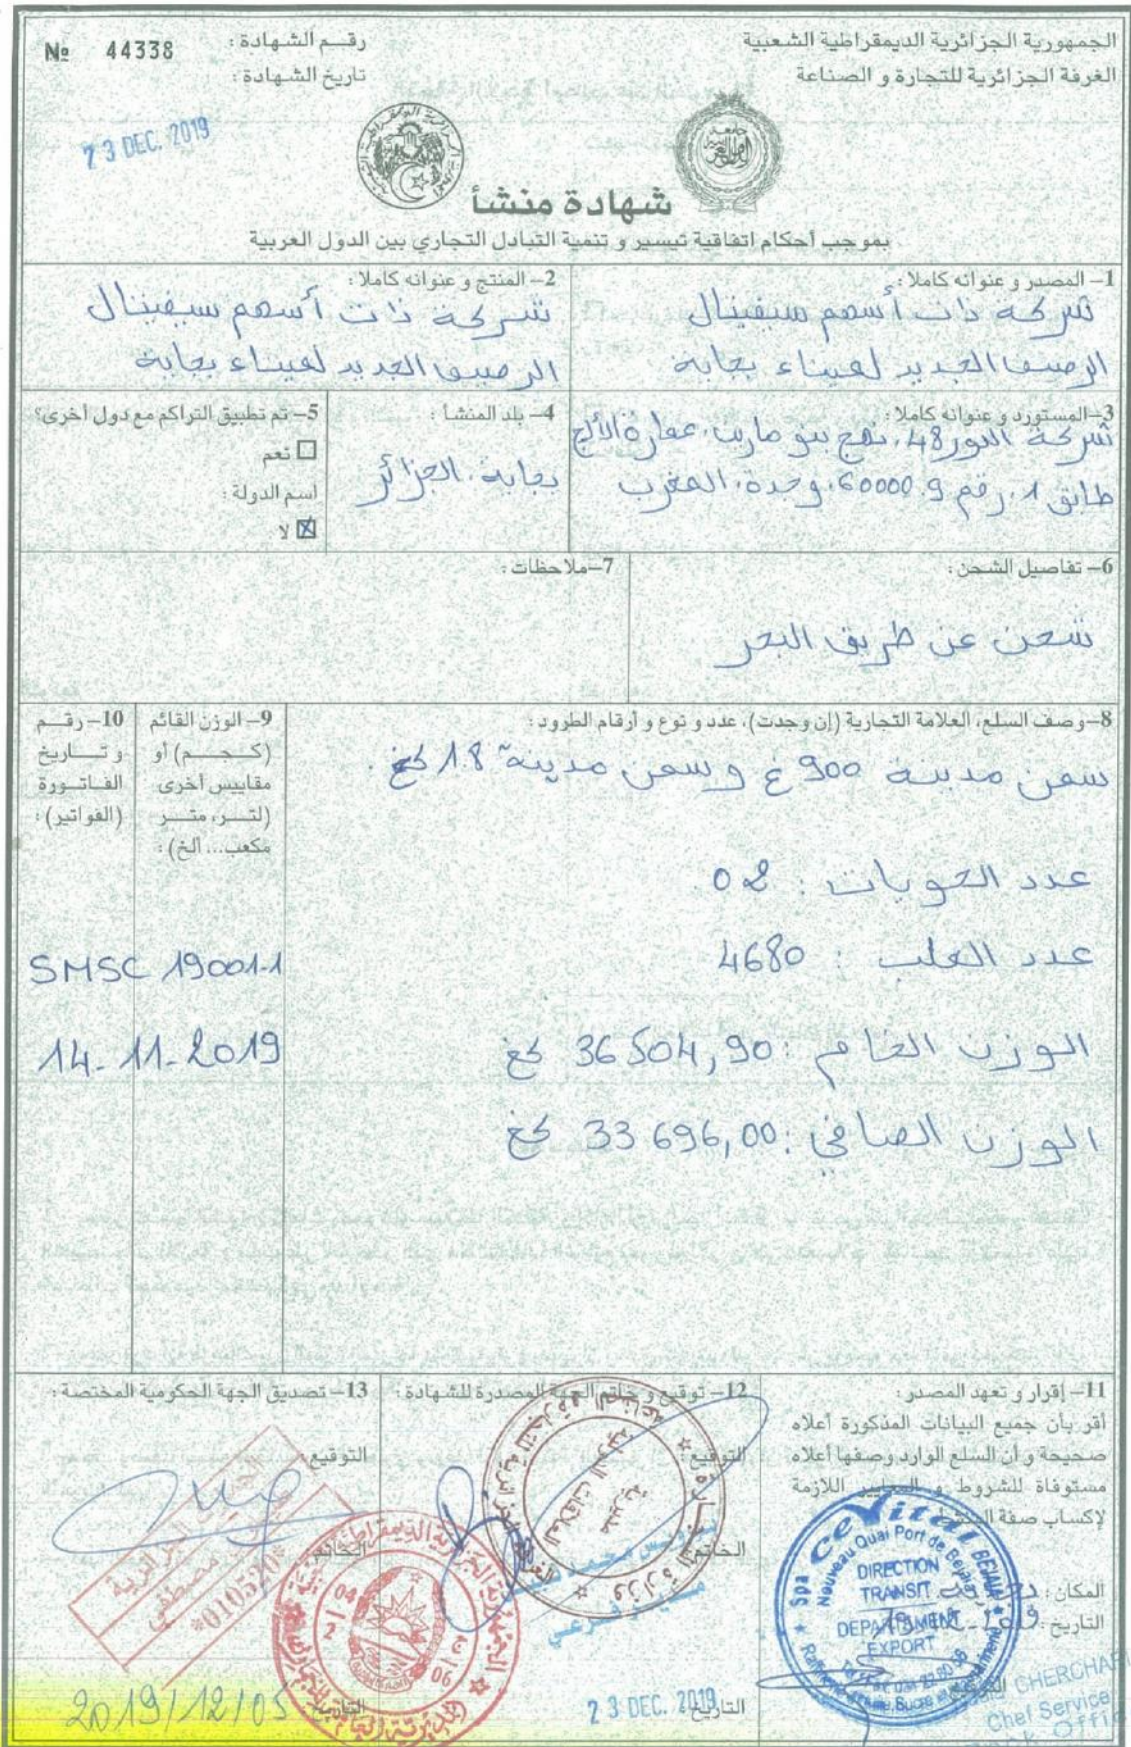 الجمهورية الجزائرية الديمقراطية الشعبية
الغرفة الجزائرية للتجارة و الصناعة
رقم الشهادة :
№ 44338
تاريخ الشهادة :
23 DEC. 2019
شهادة منشأ
بموجب أحكام اتفاقية تيسير و تنمية التبادل التجاري بين الدول العربية
1– المصدر و عنوانه كاملا :
شركة ذات أسهم سيفيتال
الرصيف الجديد لميناء بجاية
2– المنتج و عنوانه كاملا :
شركة ذات أسهم سيفيتال
الرصيف الجديد لميناء بجاية
3–المستورد و عنوانه كاملا :
شركة النور 48، نهج بنو مارين، عمارة
طابق 1، رقم 9، 60000، وجدة، المغرب
4– بلد المنشأ :
بجاية، الجزائر
5– تم تطبيق التراكم مع دول أخرى؟
☐ نعم
اسم الدولة :
☒ لا
6– تفاصيل الشحن :
شحن عن طريق البحر
7–ملاحظات :
8–وصف السلع، العلامة التجارية (إن وجدت)، عدد و نوع و أرقام الطرود :
سمن مدينة 900 غ و سمن مدينة 1.8 كغ.
عدد الحويات : 02
عدد العلب : 4680
الوزن الخام : 36 504,90 كغ
الوزن الصافي : 33 696,00 كغ
9– الوزن القائم
(كجم) أو
مقاييس أخرى
(لتر، متر
مكعب... الخ) :
10– رقم
و تاريخ
الفاتورة
(الفواتير) :
SMSC 19001-1
14-11-2019
11– إقرار و تعهد المصدر :
أقر بأن جميع البيانات المذكورة أعلاه
صحيحة و أن السلع الوارد وصفها أعلاه
مستوفاة للشروط و المعايير اللازمة
لإكساب صفة المنشأ
المكان :
التاريخ :
Spa Cevital BEJAIA
Nouveau Quai Port de Bejaia
DIRECTION
TRANSIT
DEPARTEMENT
EXPORT
CHERCHARI
Chef Service
Office
12– توقيع و خاتم الجهة المصدرة للشهادة :
التوقيع :
الخاتم :
التاريخ :
23 DEC. 2019
13– تصديق الجهة الحكومية المختصة :
التوقيع :
الخاتم :
مصطفى
التاريخ :
2019/12/05